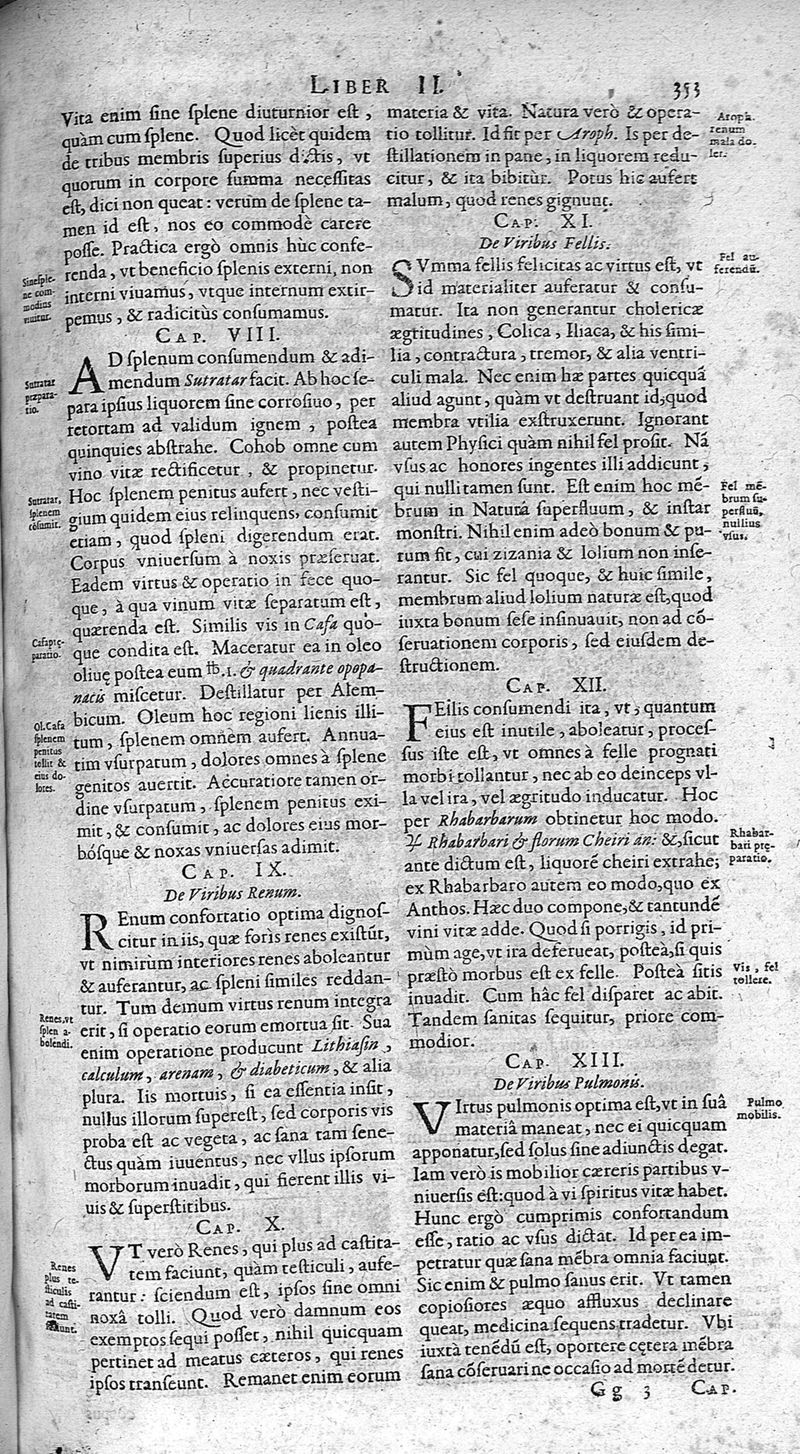 LIBER II.
353
Vita enim ſine ſplene diuturnior eſt,
quàm cum ſplene. Quod licèt quidem
de tribus membris ſuperius dictis, vt
quorum in corpore ſumma neceſſitas
eſt, dici non queat: verùm de ſplene ta-
men id eſt, nos eo commodè carere
poſſe. Practica ergò omnis hùc confe-
renda, vt beneficio ſplenis externi, non
interni viuamus, vtque internum extir-
pemus, & radicitùs conſumamus.
Sine ſple-
ne com-
modius
viuitur.
CAP. VIII.
AD ſplenum conſumendum & adi-
mendum Sutratar facit. Ab hoc ſe-
para ipſius liquorem ſine corroſiuo, per
retortam ad validum ignem, poſtea
quinquies abſtrahe. Cohob omne cum
vino vitæ rectificetur, & propinetur.
Hoc ſplenem penitus aufert, nec veſti-
gium quidem eius relinquens, conſumit
etiam, quod ſpleni digerendum erat.
Corpus vniuerſum à noxis præſeruat.
Eadem virtus & operatio in fece quo-
que, à qua vinum vitæ ſeparatum eſt,
quærenda eſt. Similis vis in Cafa quo-
que condita eſt. Maceratur ea in oleo
oliuę poſtea eum ℔.1. & quadrante opopa-
nacis miſcetur. Deſtillatur per Alem-
bicum. Oleum hoc regioni lienis illi-
tum, ſplenem omnem aufert. Annua-
tim vſurpatum, dolores omnes à ſplene
genitos auertit. Accuratiore tamen or-
dine vſurpatum, ſplenem penitus exi-
mit, & conſumit, ac dolores eius mor-
bóſque & noxas vniuerſas adimit.
Sutratar
præpara-
tio.
Sutratar,
ſplenem
cõſumit.
Cafa prę-
paratio.
Ol. Cafa
ſplenem
penitus
tollit &
eius do-
lores.
CAP. IX.
De Viribus Renum.
REnum confortatio optima dignoſ-
citur in iis, quæ forìs renes exiſtũt,
vt nimirùm interiores renes aboleantur
& auferantur, ac ſpleni ſimiles reddan-
tur. Tum demum virtus renum integra
erit, ſi operatio eorum emortua ſit. Sua
enim operatione producunt Lithiaſin,
calculum, arenam, & diabeticum, & alia
plura. Iis mortuis, ſi ea eſſentia inſit,
nullus illorum ſupereſt, ſed corporis vis
proba eſt ac vegeta, ac ſana tam ſene-
ctus quàm iuuentus, nec vllus ipſorum
morborum inuadit, qui fierent illis vi-
uis & ſuperſtitibus.
Renes, vt
ſplen a-
bolendi.
CAP. X.
VT verò Renes, qui plus ad caſtita-
tem faciunt, quàm teſticuli, aufe-
rantur: ſciendum eſt, ipſos ſine omni
noxâ tolli. Quod verò damnum eos
exemptos ſequi poſſet, nihil quicquam
pertinet ad meatus cæteros, qui renes
ipſos tranſeunt. Remanet enim eorum
Renes
plus te-
ſticulis
ad caſti-
tatem
faciunt.
materia & vita. Natura verò & opera-
tio tollitur. Id fit per Aroph. Is per de-
ſtillationem in pane, in liquorem redu-
citur, & ita bibitùr. Potus hic aufert
malum, quod renes gignunt.
Aropã.
renum
mala do.
let.
CAP. XI.
De Viribus Fellis.
SVmma fellis felicitas ac virtus eſt, vt
id materialiter auferatur & conſu-
matur. Ita non generantur cholericæ
ægritudines, Colica, Iliaca, & his ſimi-
lia, contractura, tremor, & alia ventri-
culi mala. Nec enim hæ partes quicquã
aliud agunt, quàm vt deſtruant id, quod
membra vtilia exſtruxerunt. Ignorant
autem Phyſici quàm nihil fel proſit. Nã
vſus ac honores ingentes illi addicunt,
qui nulli tamen ſunt. Eſt enim hoc mē-
brum in Naturâ ſuperfluum, & inſtar
monſtri. Nihil enim adeò bonum & pu-
rum fit, cui zizania & lolium non inſe-
rantur. Sic fel quoque, & huic ſimile,
membrum aliud lolium naturæ eſt, quod
iuxta bonum ſeſe inſinuauit, non ad cõ-
ſeruationem corporis, ſed eiuſdem de-
ſtructionem.
Fel au-
ferendũ.
Fel mē-
brum ſu-
perfluũ,
nullius
vſus.
CAP. XII.
FEllis conſumendi ita, vt, quantum
eius eſt inutile, aboleatur, proceſ-
ſus iſte eſt, vt omnes à felle prognati
morbi tollantur, nec ab eo deinceps vl-
la vel ira, vel ægritudo inducatur. Hoc
per Rhabarbarum obtinetur hoc modo.
♃ Rhabarbari & florum Cheiri an: &, ſicut
ante dictum eſt, liquorē cheiri extrahe;
ex Rhabarbaro autem eo modo, quo ex
Anthos. Hæc duo compone, & tantundē
vini vitæ adde. Quod ſi porrigis, id pri-
mùm age, vt ira deferueat, poſteà, ſi quis
præſtò morbus eſt ex felle. Poſteà ſitis
inuadit. Cum hâc fel diſparet ac abit.
Tandem ſanitas ſequitur, priore com-
modior.
Rhabar-
bari prę-
paratio.
Vis, fel
tollere.
CAP. XIII.
De Viribus Pulmonis.
VIrtus pulmonis optima eſt, vt in ſuâ
materiâ maneat, nec ei quicquam
apponatur, ſed ſolus ſine adiunctis degat.
Iam verò is mobilior cæteris partibus v-
niuerſis eſt: quod à vi ſpiritus vitæ habet.
Hunc ergò cumprimis confortandum
eſſe, ratio ac vſus dictat. Id per ea im-
petratur quæ ſana mēbra omnia faciunt.
Sic enim & pulmo ſanus erit. Vt tamen
copioſiores æquo affluxus declinare
queat, medicina ſequens tradetur. Vbi
iuxtà tenēdũ eſt, oportere cętera mēbra
ſana cõſeruari ne occaſio ad mortē detur.
Pulmo
mobilis.
Gg 3
CAP.